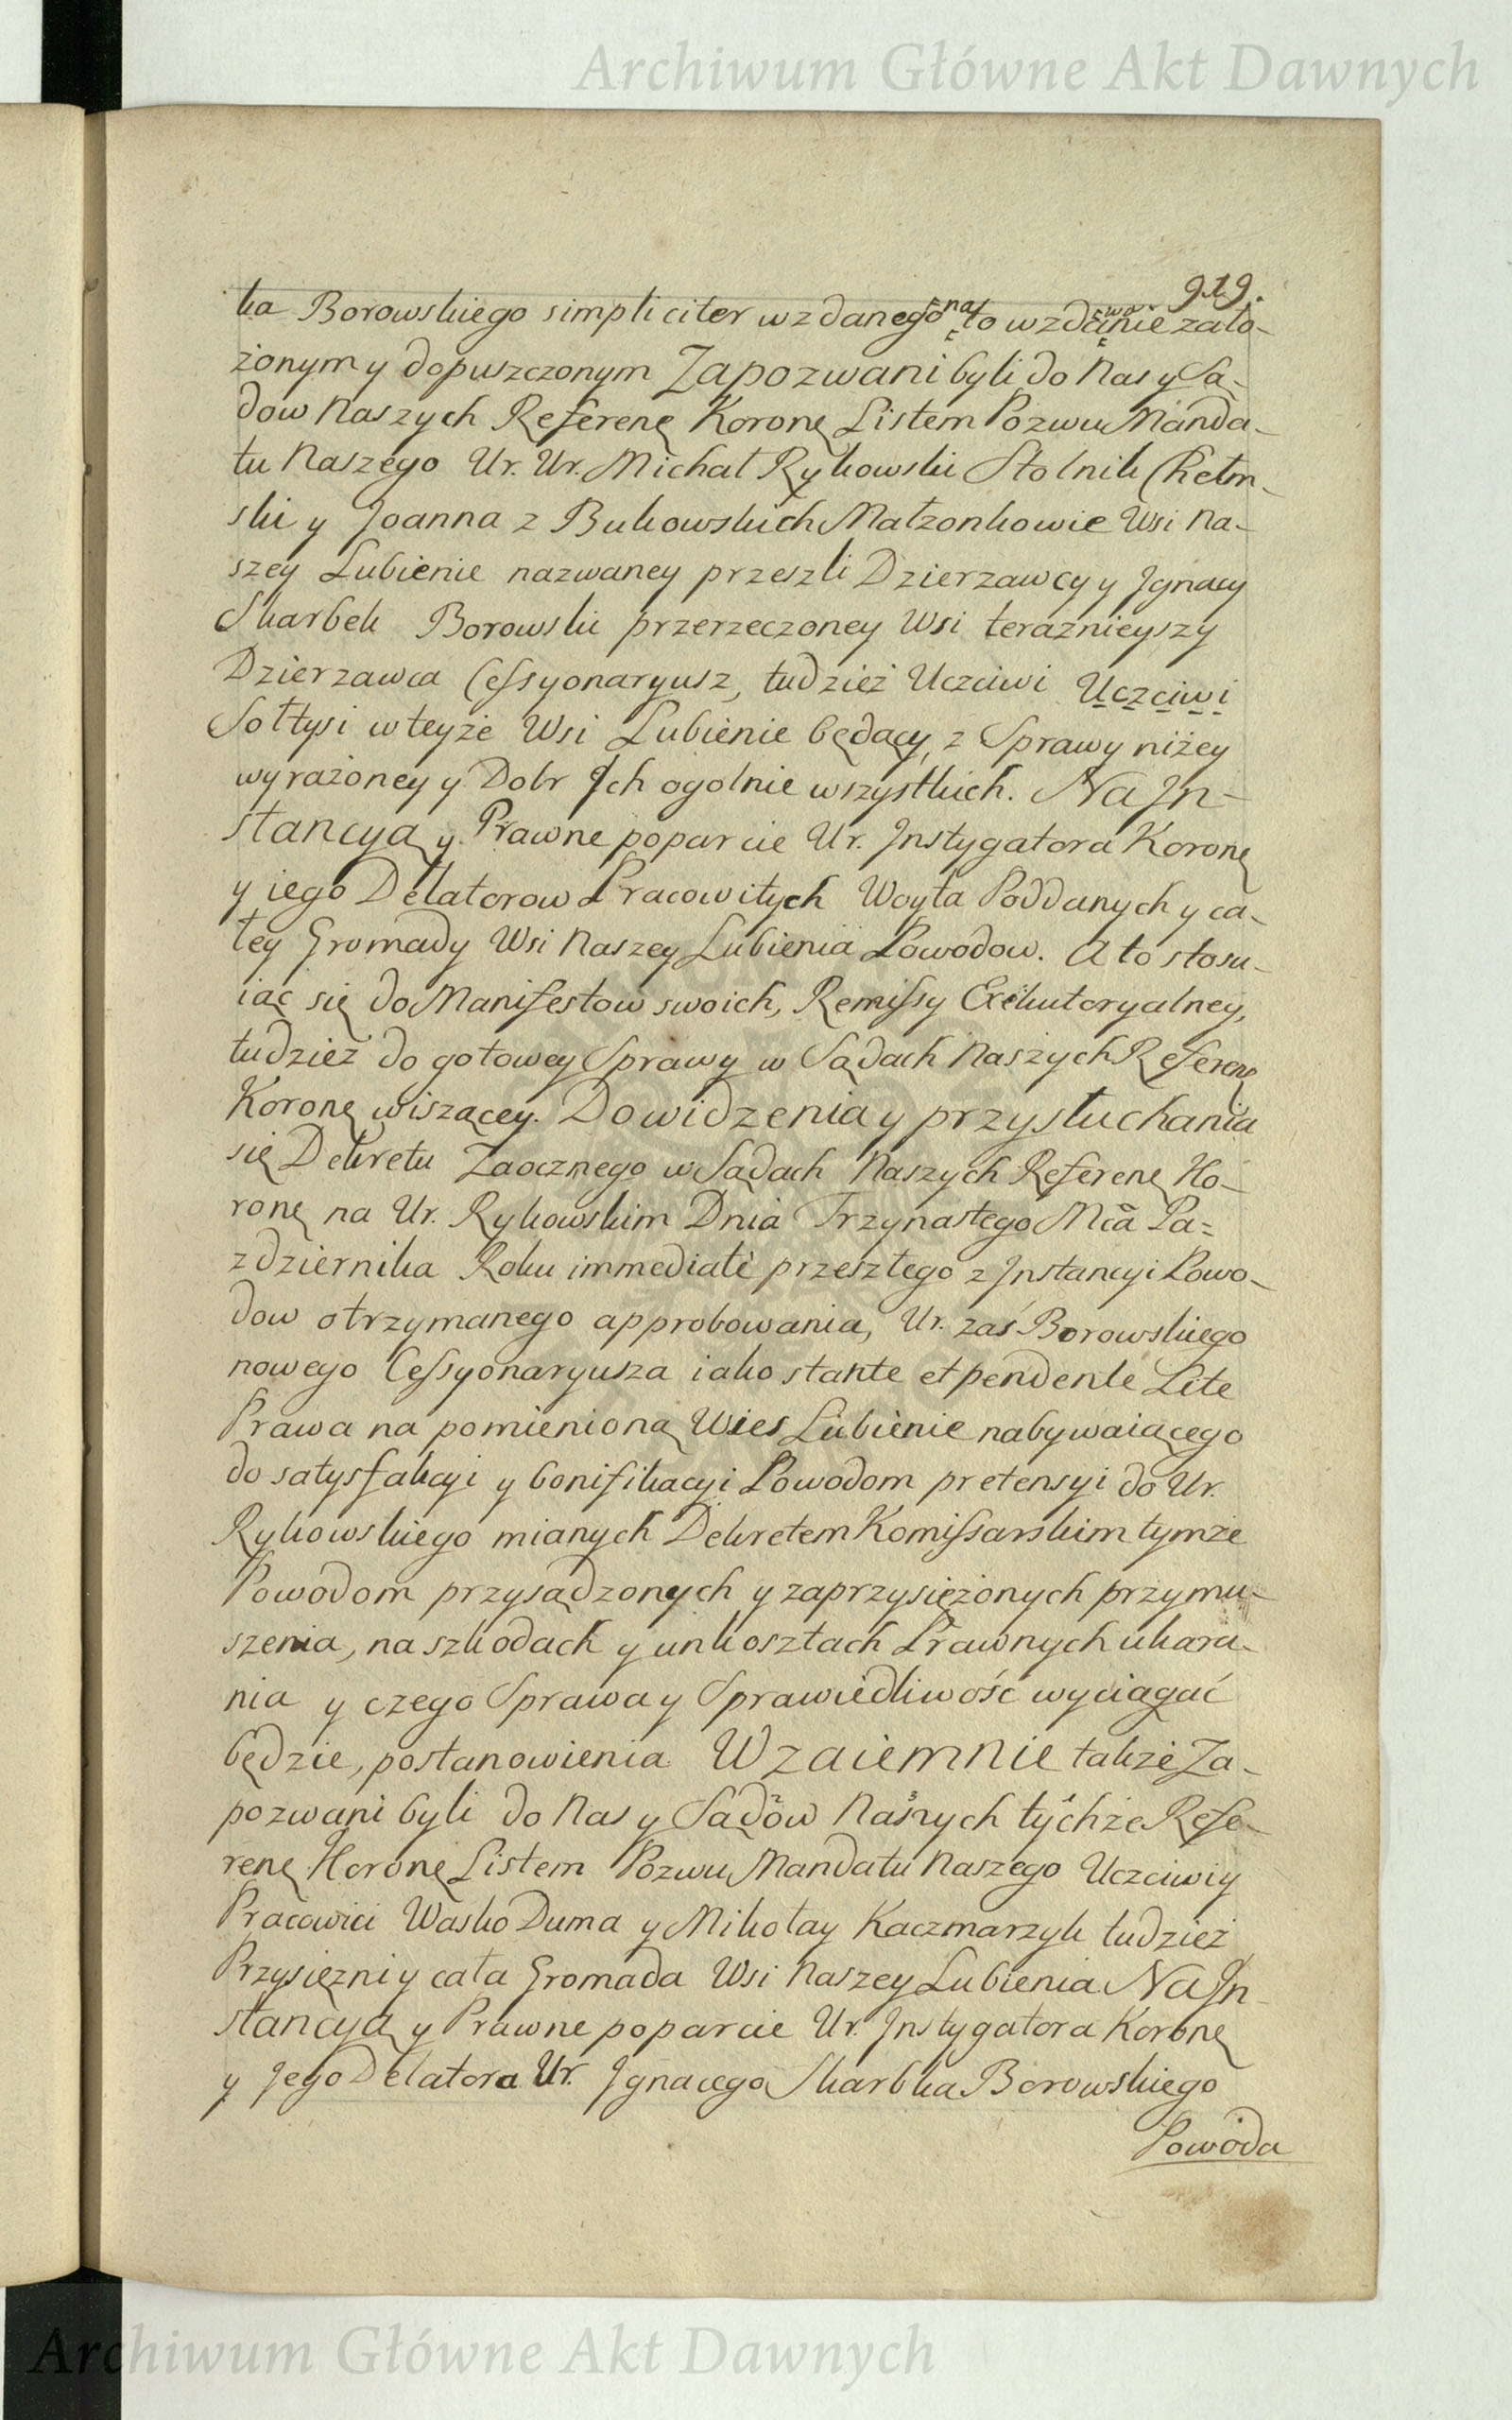 Archiwum Główne Akt Dawnych
919.
ka Borowskiego simpliciter wzdanego na to wzdawanie zało-
żonym y dopuszczonym Zapozwani byli do Nas y Są-
dow Naszych Referenę Koronę Listem Pozwu Manda-
tu Naszego Ur. Ur. Michał Rykowski Stolnik Chełm-
ski y Joanna z Bukowskich Małzonkowie Wsi Na-
szey Lubienie nazwaney przeszli Dzierzawcy y Jgnacy
Skarbek Borowski przerzeczoney Wsi teraznieyszy
Dzierzawca Cessyonaryusz, tudzież Uczciwi Uczciwi
Sołtysi w teyże Wsi Lubienie będący, z Sprawy niżey
wyrażoney y Dobr Jch ogolnie wszystkich. Na Jn-
stancyą y Prawne poparcie Ur. Jnstygatora Koronę
y iego Delatorow Pracowitych Woyta Poddanych y ca-
łey Gromady Wsi Naszey Lubienia Powodow. A to stosu-
iąc się do Manifestow swoich, Remissy Exekutoryalney,
tudzież do gotowey Sprawy w Sądach Naszych Referenę
Koronę wiszącey. Do widzenia y przysłuchania
się Dekretu Zaocznego w Sądach Naszych Referenę Ko-
ronę na Ur. Rykowskim Dnia Trzynastego Mca Pa=
zdziernika Roku immediate przeszłego z Jnstancyi Powo-
dow otrzymanego approbowania, Ur. zaś Borowskiego
nowego Cessyonaryusza iako stante et pendente Lite
Prawa na pomienioną Wies Lubienie nabywaiącego
do satysfakcyi y bonifikacyi Powodom pretensyi do Ur.
Rykowskiego mianych Dekretem Komissarskim tymże
Powodom przysądzonych y zaprzysiężonych przymu-
szenia, na szkodach y unkosztach Prawnych ukara-
nia y czego Sprawa y Sprawiedliwość wyciągać
będzie, postanowienia Wzaiemnie także Za-
pozwani byli do Nas y Sądów Naszych tychże Refe-
renę Koronę Listem Pozwu Mandatu Naszego Uczciwi y
Pracowici Wasko Duma y Mikołay Kaczmarzyk tudzież
Przysiężni y cała Gromada Wsi Naszey Lubienia Na Jn-
stancyą y Prawne poparcie Ur. Jnstygatora Koronę
y Jego Delatora Ur. Jgnacego Skarbka Borowskiego
Powoda
Archiwum Główne Akt Dawnych